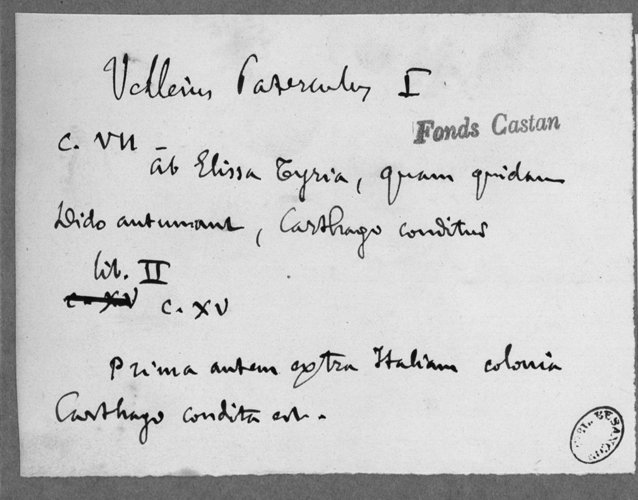 Velleius Paterculus I
Fonds Castan
C. VII
ab Elissa Tyria, quam quidam
Dido autumant, Carthago conditur
lib. II
c. XV c. XV
Prima autem extra Italiam colonia
Carthago condita est.
BIBL. BESANÇON